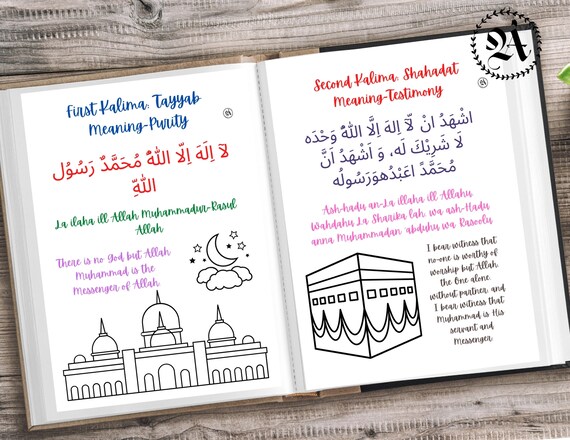 First Kalima: Tayyab
Meaning-Purity
لَآ اِلَهَ اِلّا اللهُ مُحَمَّدٌ رَسُوُل
اللهِّ
La ilaha ill Allah Muhammadur-Rasul
Allah
There is no God but Allah
Muhammad is the
Messenger of Allah
Second Kalima: Shahadat
Meaning-Testimony
اشْهَدُ انْ لّآ اِلهَ اِلَّا اللهُ وَحْدَه
لَا شَرِيْكَ لَه، وَ اَشْهَدُ اَنَّ
مُحَمَّدً اعَبْدُهوَرَسُولُه
Ash-hadu an-La illaha ill-Allahu
Wahdahu La Sharika lah. wa ash-Hadu
anna Muhammadan 'abduhu wa Rasoolu
I bear witness that
no-one is worthy of
worship but Allah
the One alone,
without partner, and
I bear witness that
Muhammad is His
servant and
Messenger